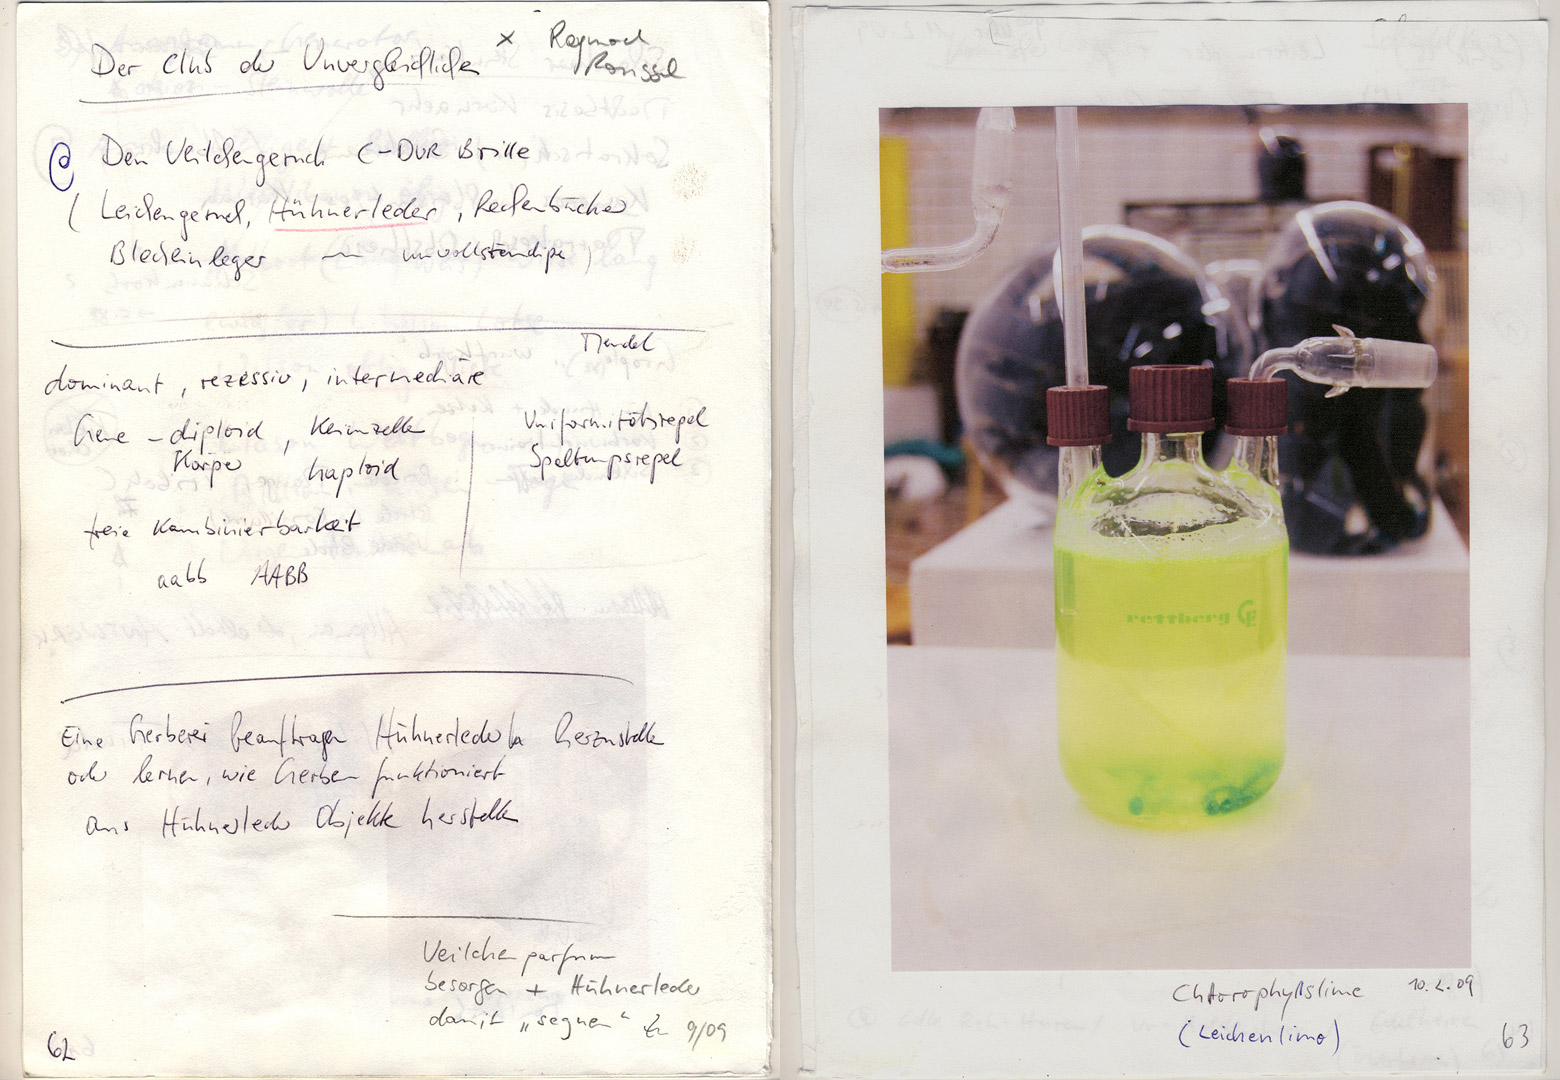 Der Club der Unvergleichlichen
x Raymond
Roussel
Den Veilchengeruch C-DUR Brille
( Leichengeruch, Hühnerleder, Rechenbücher
Blecheinleger — unvollständige )
Mendel
dominant, rezessiv, intermediäre
Gene - diploid, Keimzelle
Körper haploid
Uniformitätsregel
Spaltungsregel
freie Kombinierbarkeit
aabb AABB
Eine Gerberei beauftragen Hühnerleder herzustellen
oder lernen, wie Gerben funktioniert
aus Hühnerleder Objekte herstellen
Veilchenparfum
besorgen + Hühnerleder
damit „segnen“ 9/09
62
rettberg
Chlorophyllslime 10.2.09
(Leichenlimo)
63